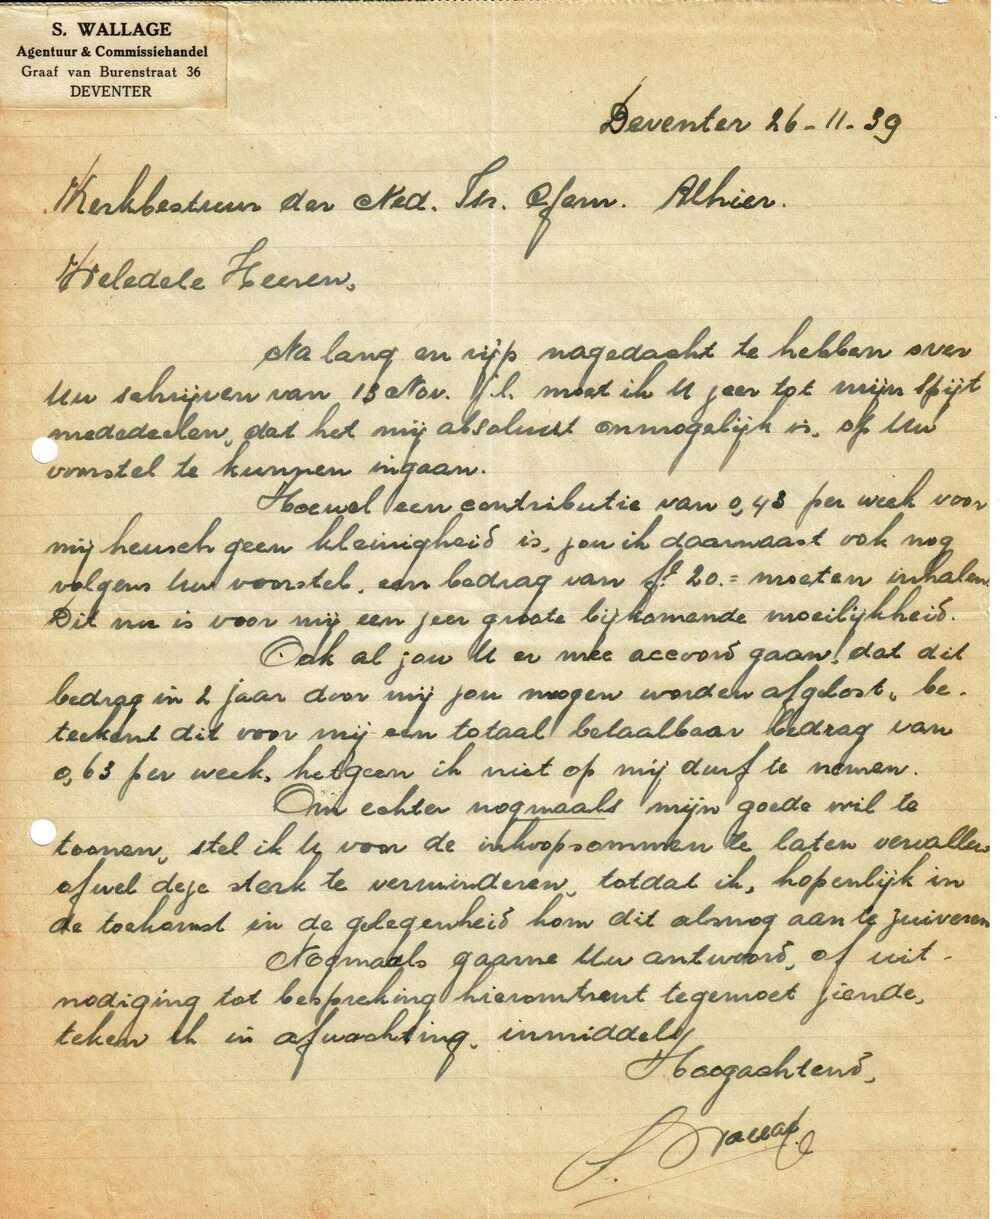 S. WALLAGE
Agentuur & Commissiehandel
Graaf van Burenstraat 36
DEVENTER
Deventer 26-11-39
Kerkbestuur der Ned. Isr. Gem. Alhier.
Weledele Heeren,
Na lang en rijp nagedacht te hebben over
Uw schrijven van 13 Nov. j.l. moet ik U zeer tot mijn spijt
mededeelen, dat het mij absoluut onmogelijk is, op Uw
voorstel te kunnen ingaan.
Hoewel een contributie van 0,43 per week voor
mij heusch geen kleinigheid is, zou ik daarnaast ook nog
volgens Uw voorstel, een bedrag van fl 20.= moeten inhalen.
Dit nu is voor mij een zeer groote bijkomende moeilijkheid.
Ook al zou U er mee accoord gaan, dat dit
bedrag in 2 jaar door mij zou mogen worden afgelost, be-
teekent dit voor mij een totaal betaalbaar bedrag van
0,63 per week, hetgeen ik niet op mij durf te nemen.
Om echter nogmaals mijn goede wil te
toonen, stel ik U voor de inkoopsommen te laten vervallen
ofwel deze sterk te verminderen, totdat ik, hopenlijk in
de toekomst in de gelegenheid kom dit alsnog aan te zuiveren
Nogmaals gaarne Uw antwoord, of uit-
nodiging tot bespreking hieromtrent tegemoet ziende,
teken ik in afwachting, inmiddels
Hoogachtend,
S. Wallage